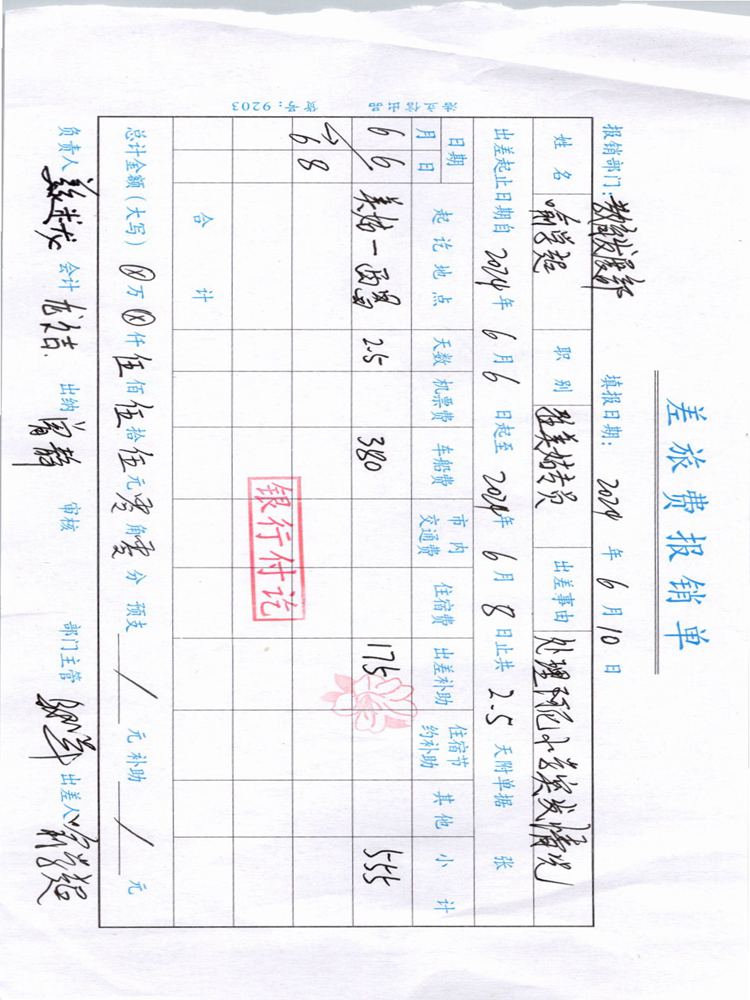 差旅费报销单
报销部门:教育发展部 填报日期: 2024 年 6 月 10 日
姓名 喻学超 职别 驻美姑专员 出差事由 处理阿尼小学突发情况
出差起止日期自 2024 年 6 月 6 日起至 2024 年 6 月 8 日止共 2.5 天附单据 张
日期 起讫地点 天数 机票费 车船费 市内交通费 住宿费 出差补助 住宿节约补助 其他 小计
月 日
6 6 美姑—西昌 2.5 380 175 555
→6 8
银行付讫
合计
总计金额(大写) ⊗万⊗仟伍佰伍拾伍元零角零分 预支 / 元 补助 / 元
负责人 会计 龙久吉 出纳 阁静 审核 部门主管 出差人 喻学超
货号:9203